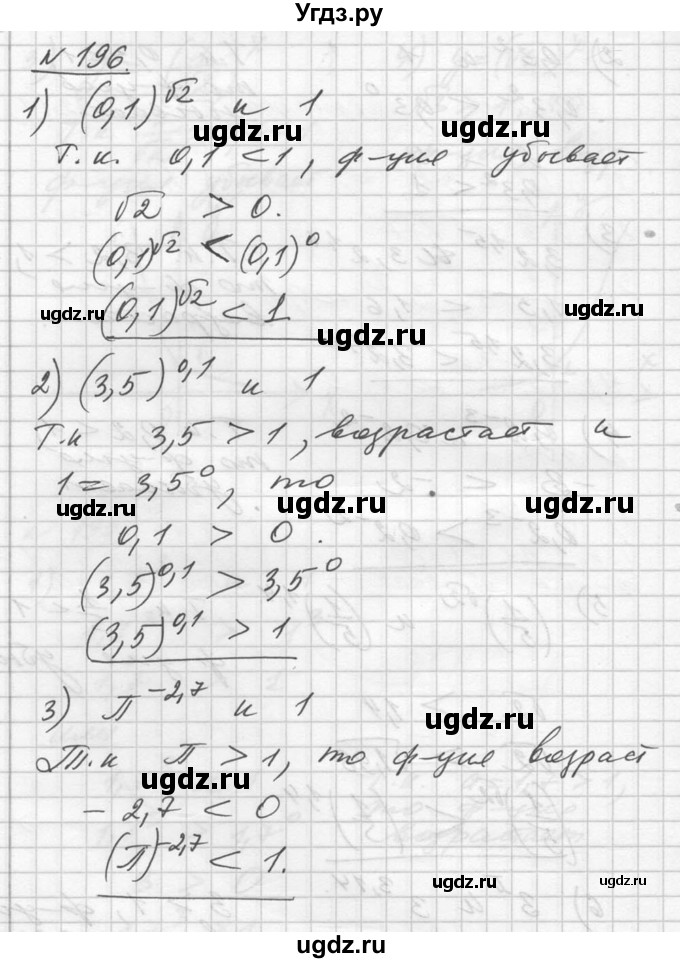 Угдз.ру
N 196.
1) (0,1)^√2 и 1
ugdz.ru ugdz.ru
Т.к. 0,1 < 1, ф-ция убывает
√2 > 0.
(0,1)^√2 < (0,1)^0
ugdz.ru ugdz.ru
(0,1)^√2 < 1
ugdz.ru
2) (3,5)^0,1 и 1
Т.к 3,5 > 1, возрастает и
1 = 3,5^0, то
ugdz.ru ugdz.ru ugdz.ru
0,1 > 0.
(3,5)^0,1 > 3,5^0
(3,5)^0,1 > 1
3) π^-2,7 и 1
ugdz.ru
Т.к π > 1, то ф-ция возраст
ugdz.ru
- 2,7 < 0
(π)^-2,7 < 1.
ugdz.ru ugdz.ru
ugdz.ru
ugdz.ru